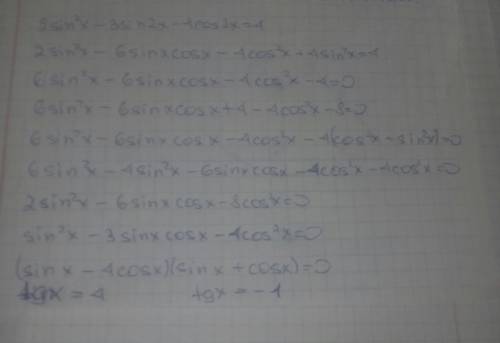 2sin²x - 3sin2x - 4cos2x = 4
2sin²x - 6sinxcosx - 4cos²x + 4sin²x = 4
6sin²x - 6sinxcosx - 4cos²x - 4 = 0
6sin²x - 6sinxcosx + 4 - 4cos²x - 8 = 0
6sin²x - 6sinxcosx - 4cos²x - 4(cos²x - sin²x) = 0
6sin²x - 4sin²x - 6sinxcosx - 4cos²x - 4cos²x = 0
2sin²x - 6sinxcosx - 8cos²x = 0
sin²x - 3sinxcosx - 4cos²x = 0
(sinx - 4cosx)(sinx + cosx) = 0
tgx = 4 tgx = -1